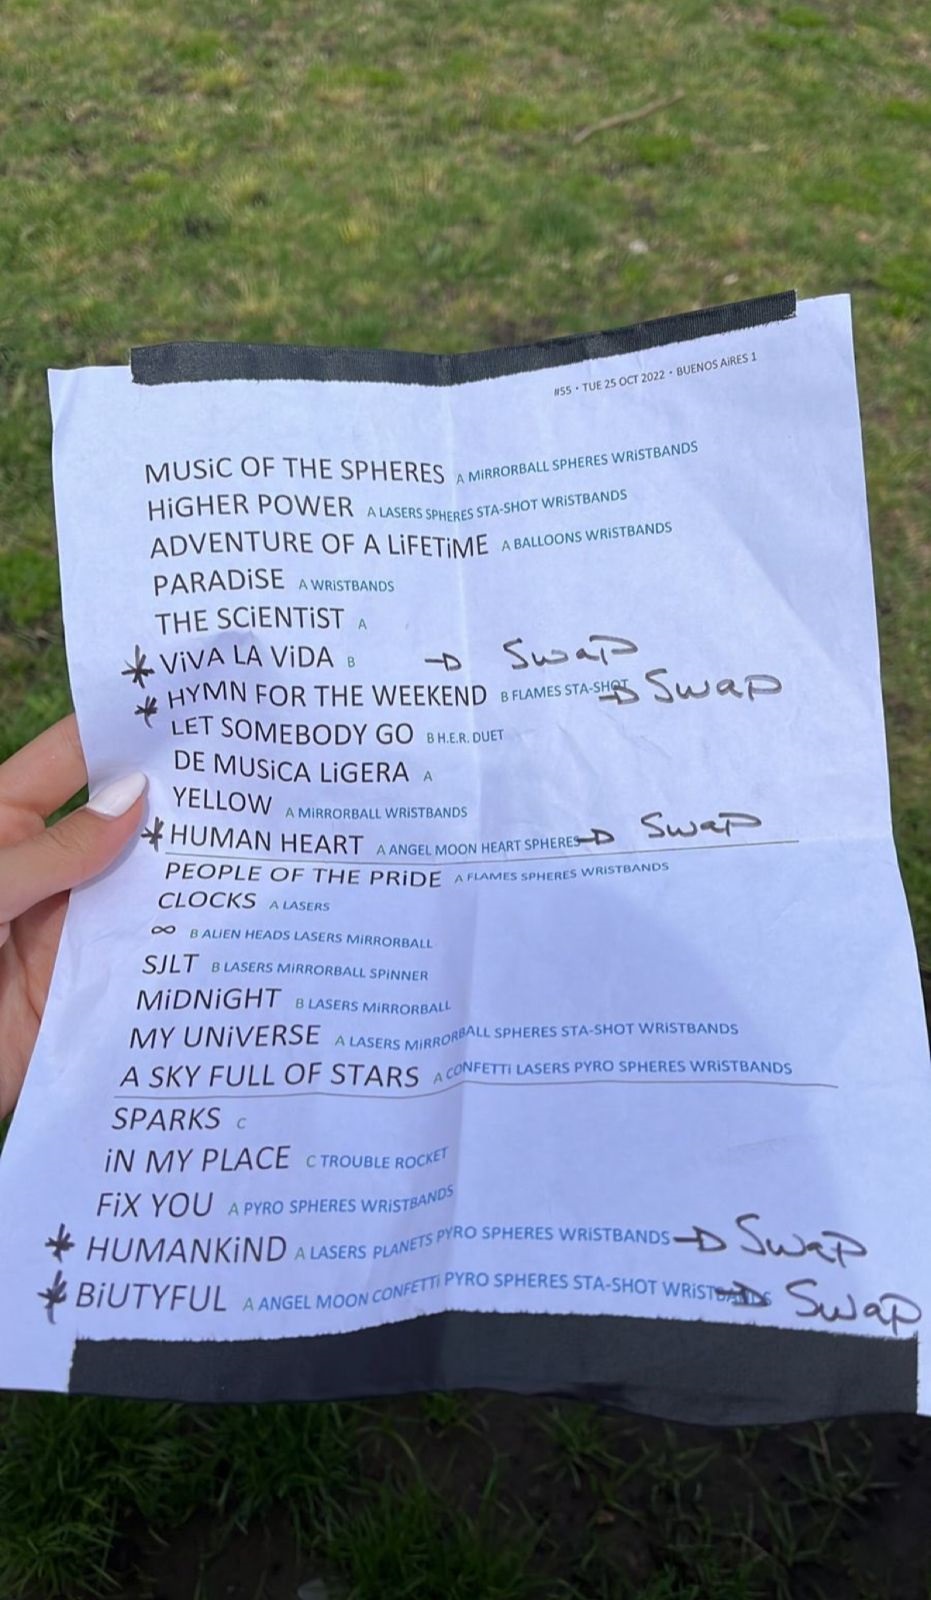 #55 · TUE 25 OCT 2022 · BUENOS AiRES 1
MUSiC OF THE SPHERES A MiRRORBALL SPHERES WRiSTBANDS
HiGHER POWER A LASERS SPHERES STA-SHOT WRiSTBANDS
ADVENTURE OF A LiFETiME A BALLOONS WRiSTBANDS
PARADiSE A WRiSTBANDS
THE SCiENTiST A
* ViVA LA ViDA B → Swap
* HYMN FOR THE WEEKEND B FLAMES STA-SHOT → Swap
LET SOMEBODY GO B H.E.R. DUET
DE MUSiCA LiGERA A
YELLOW A MiRRORBALL WRiSTBANDS
* HUMAN HEART A ANGEL MOON HEART SPHERES → Swap
PEOPLE OF THE PRiDE A FLAMES SPHERES WRiSTBANDS
CLOCKS A LASERS
∞ B ALiEN HEADS LASERS MiRRORBALL
SJLT B LASERS MiRRORBALL SPiNNER
MiDNiGHT B LASERS MiRRORBALL
MY UNiVERSE A LASERS MiRRORBALL SPHERES STA-SHOT WRiSTBANDS
A SKY FULL OF STARS A CONFETTi LASERS PYRO SPHERES WRiSTBANDS
SPARKS C
iN MY PLACE C TROUBLE ROCKET
FiX YOU A PYRO SPHERES WRiSTBANDS
* HUMANKiND A LASERS PLANETS PYRO SPHERES WRiSTBANDS → Swap
* BiUTYFUL A ANGEL MOON CONFETTi PYRO SPHERES STA-SHOT WRiSTBANDS → Swap